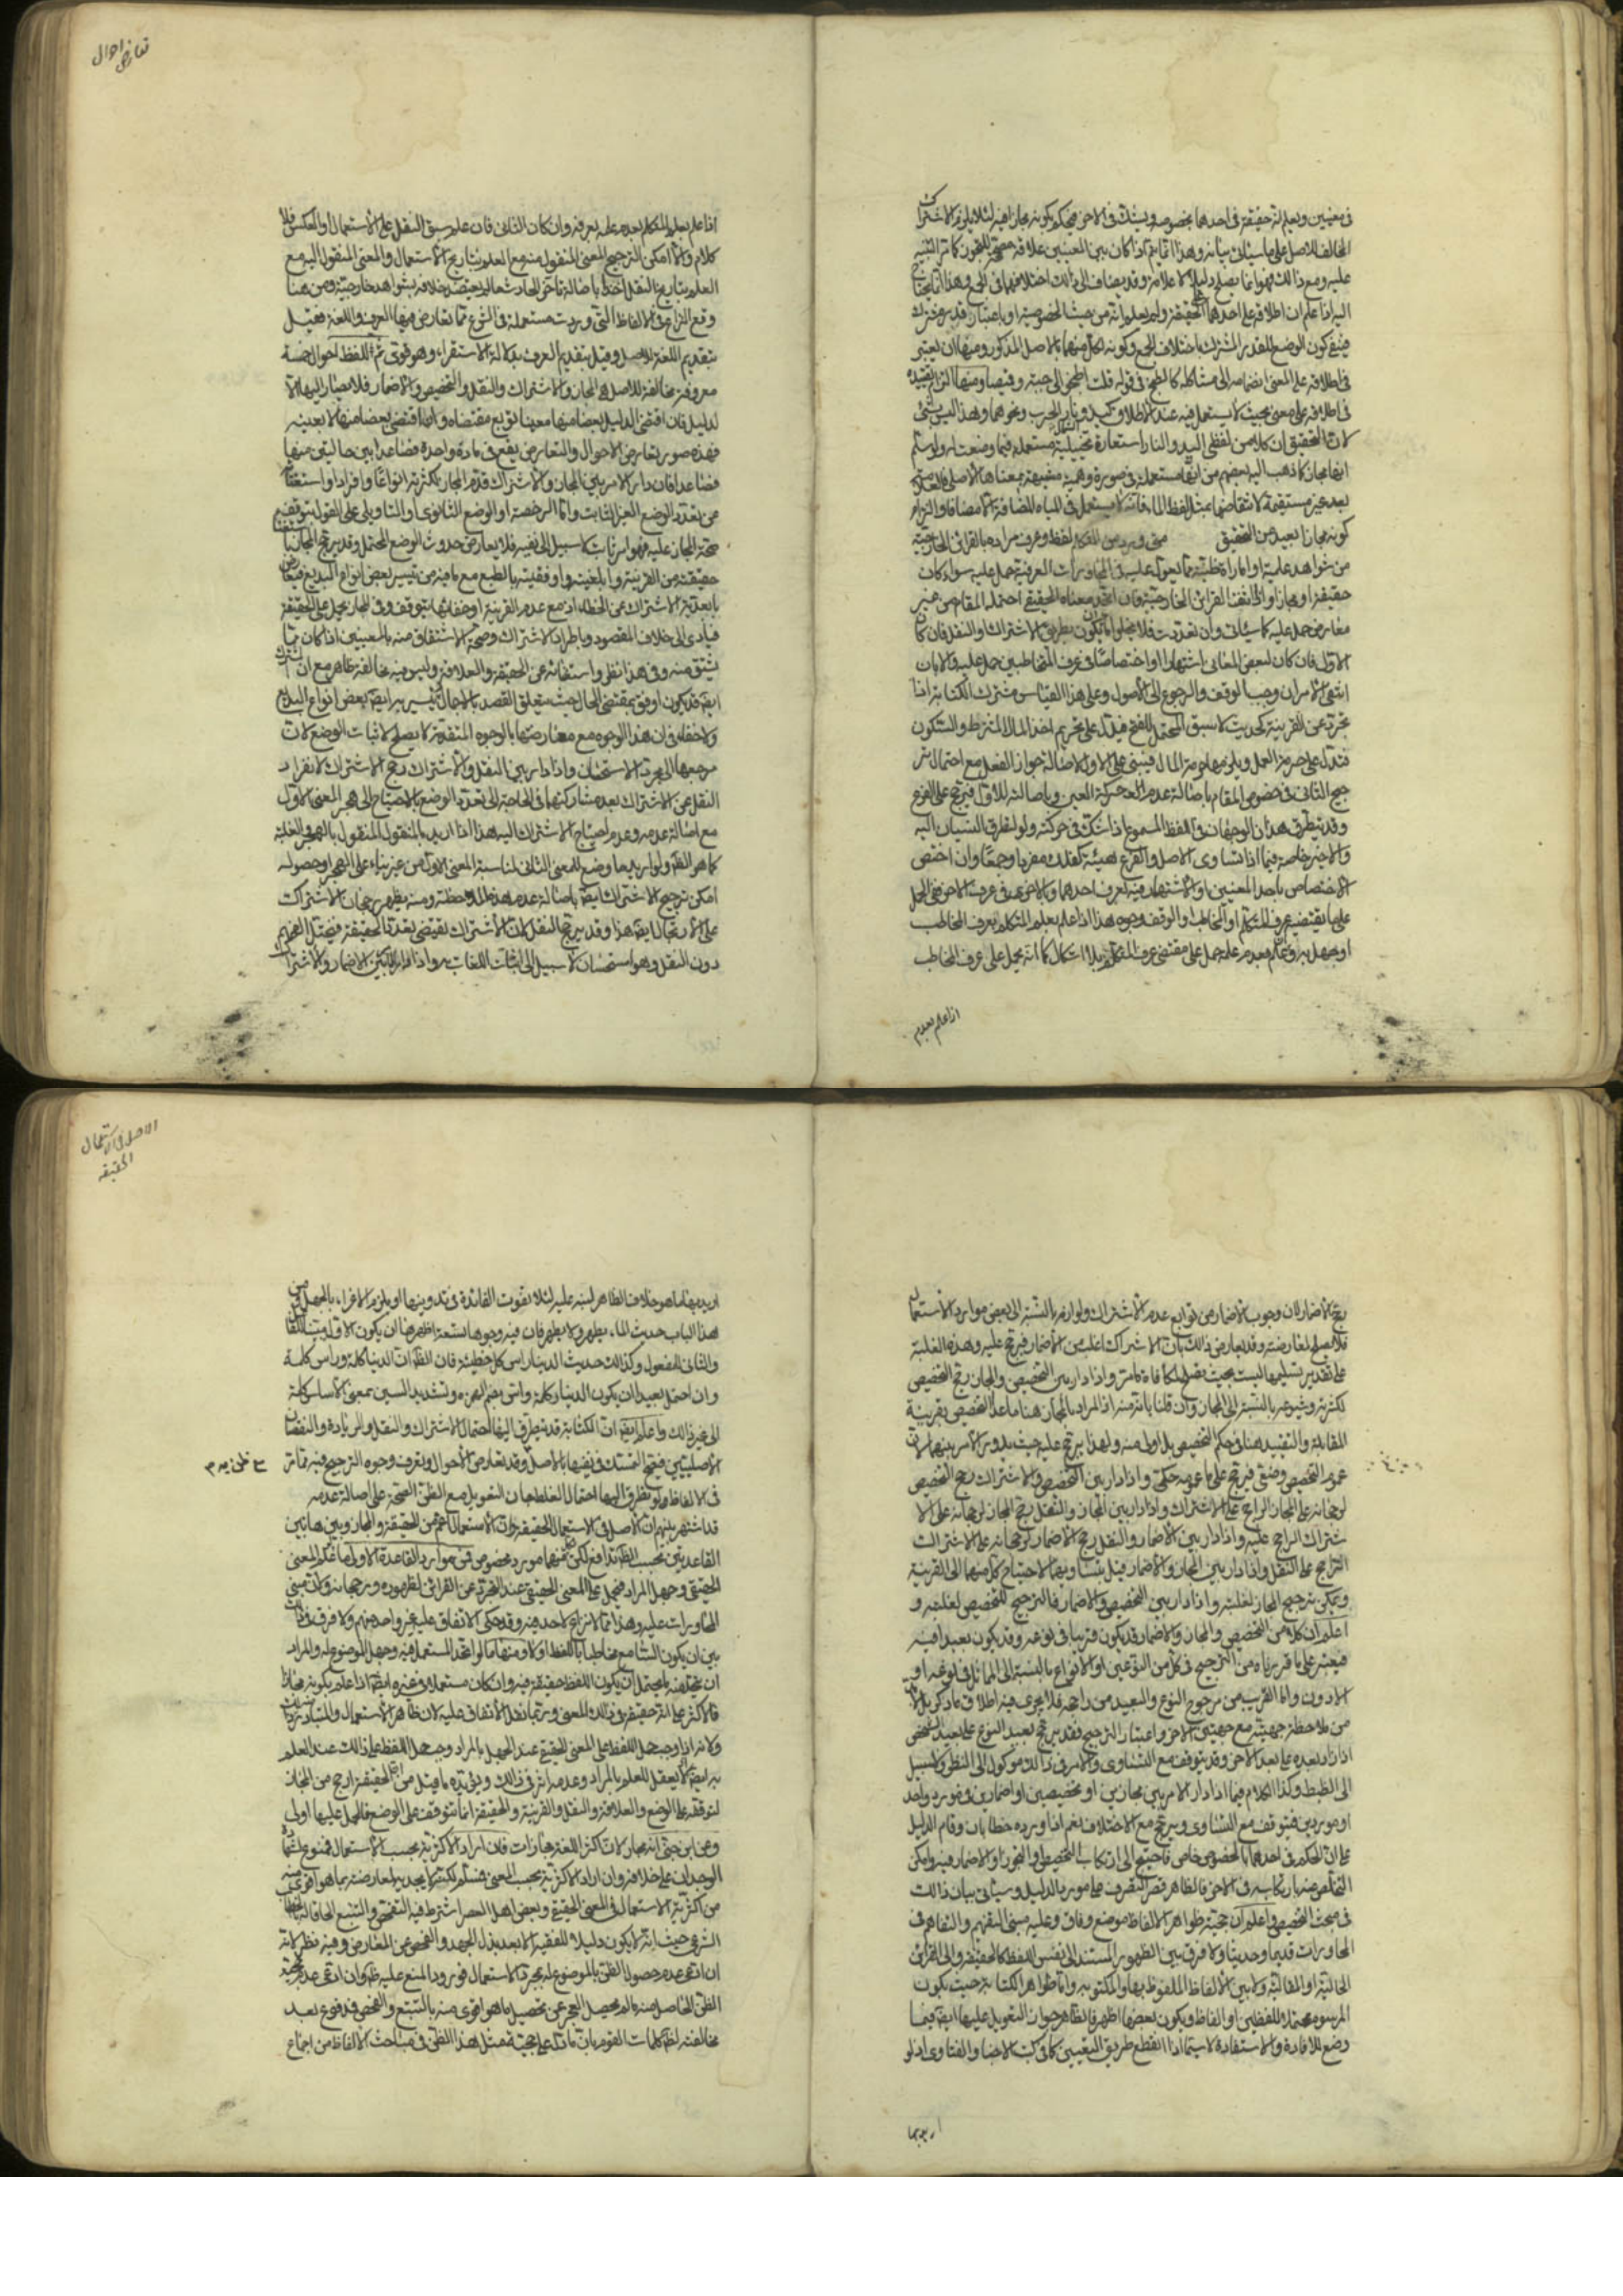 في معنيين ويعلم انه حقيقة في احدهما بخصوصه ويشك في الاخر فيحكم بكونه مجازا فيه لئلا يلزم الاشتراك
المخالف للاصل على ما سيأتي بيانه وهذا انما يتم اذا كان بين المعنيين علاقة مصححة للتجوز كما مر التنبيه
عليه ومع ذلك فهو انما يصلح دليلا لا علامة وقد يضاف الى ذلك اختلافهما في الجمع وهذا انما يحتاج
اليه اذا علم ان اطلاقه على احدهما الحقيقة ولم يعلم انه من حيث الخصوصية او باعتبار قدر مشترك
فينفى كون الوضع للقدر المشترك باختلاف الجمع وكونه لكل منهما بالاصل المذكور ومنها ان يعتبر
في اطلاقه على المعنى انضمامه الى مشاكله كالطبخ في قوله قلت اطبخوا لي جبة وقميصا ومنها التزام تقييده
في اطلاقه على معنى بحيث لا يستعمل فيه عند الاطلاق كيد الشمال ونار الحرب ونحوهما وهذا ليس بشئ
لان التحقيق ان كلا من لفظي اليد والنار استعارة تخييلية مستعملة فيما وضعت له ولو سلم
انها مجاز كما ذهب اليه بعضهم من انها مستعملة في صورة وهمية مشبهة بمعناها الاصلي فالعلامة
بعد غير مستقيمة لانتقاضها بمثل لفظ الماء فانه لا يستعمل في المياه المضافة الا مضافا والتزام
كونه مجازا بعيد عن التحقيق متى ورد من المتكلم لفظ وعرف مراده بالقرائن الخارجية
من شواهد علمية او امارات ظنية مما يعول عليه في المحاورات العرفية حمل عليه سواء كان
حقيقة او مجازا وان انتفت القرائن الخارجية فان اتحد معناه الحقيقي احتمله المقام من غير
معارض حمل عليه كما سيأتي وان تعددت فلا يخلو اما ان يكون بطريق الاشتراك او النقل فان كان
الاول فان كان لبعض المعاني اشتهارا او اختصاصا في عرف المتخاطبين حمل عليه والا بان
انتفى الامران وجب الوقف والرجوع الى الاصول وعلى هذا القياس مشترك الكتابة اذا
تجرد عن القرينة كحديث لا سبق المحتمل للفتح فيدل على تحريم اخذ المال المشترط والسكون
فتدل على حرمة العمل ويلزمها حرمة المال فيبنى على الاول لاصالة جواز الفعل مع احتمال تر
جيح الثاني في خصوص المقام باصالة عدم الحركة العين وباصالته للاول فيرجح على الفرع
وقد يتطرق هذان الوجهان في اللفظ المسموع اذا شك في حركته ولو لطرق النسيان اليه
والاخير خاصة فيما اذا تساوى الاصل والفرع هيئة كفلك مفردا وجمعا وان اختص
الاختصاص باحد المعنيين او الاشتهار فيه لعرف احدهما والاخر في عرف الاخر ففي الحمل
على ما يقتضيه عرف المتكلم او المخاطب او الوقف وجوه هذا اذا علم بعلم المتكلم بعرف المخاطب
او جهل به وان علم بعدم علمه حمل على مقتضى عرف المتكلم بلا اشكال كما انه يحمل على عرف المخاطب
اذا علم بعدم
تعارض احوال
اذا علم بعلم المتكلم بعدم علمه بعرفه وان كان الثاني فان علم سبق النقل على الاستعمال او العكس فلا
كلام والا امكن الترجيح المعنى المنقول منه مع العلم بتاريخ الاستعمال والمعنى المنقول اليه مع
العلم بتاريخ النقل اخذا باصالة تاخر الحادث ما لم يعتضد خلافه بشواهد خارجية ومن هنا
وقع النزاع في الالفاظ التي وردت مستعملة في الشرع مما تعارض فيها العرف واللغة فقيل
بتقديم اللغة للاصل وقيل بتقديم العرف بدلالة الاستقراء وهو قوي ثم اللفظ احوال خمسة
معروفة مخالفة للاصل هي المجاز والاشتراك والنقل والتخصيص والاضمار فلا يصار اليها الا
لدليل فان اقتضى الدليل بعضا منها معينا اتبع مقتضاه وان اقتضى بعضا منها لا بعينه
فهذه صور تعارض الاحوال والتعارض يقع في مادة واحدة فصاعدا بين حالتين منها
فصاعدا فان دار الامر بين المجاز والاشتراك قدم المجاز لكثرته انواعا وافرادا واستغنائه
عن تعدد الوضع الغير الثابت واما الرخصة او الوضع الثانوي او التاويلي على القول بتوقف
صحة المجاز عليه فهو امر ثابت لا سبيل الى نفيه فلا يعارض حدوث الوضع المحتمل وقد يرجح المجاز
حقيقته من القرينة وابلغيته واوفقيته بالطبع مع ما فيه من تيسير بعض انواع البديع فيعارض
بابعدية الاشتراك عن الخطاء اذ مع عدم القرينة او خفائها يتوقف وفي المجاز يحمل على الحقيقة
فيادى الى خلاف المقصود وباطراد الاشتراك وصحة الاشتقاق منه بالمعنيين اذا كان مما
يشتق منه وفي هذا نظر واستغنائه عن الحقيقة والعلاقة وليس فيه مخالفة ظاهر مع ان الاشتراك
ايضا قد يكون اوفق بمقتضى الحال حيث يتعلق القصد بالاجمال وتيسير به ايضا بعض انواع البديع
ولا خفاء في ان هذا الوجوه مع معارضتها بالوجوه المتقدمة لا يصلح لاثبات الوضع لان
مرجعها الى مجرد الاستحسان واذا دار بين النقل والاشتراك رجح الاشتراك لانفراد
النقل عن الاشتراك بعد مشاركتهما في الحاجة الى تعدد الوضع بالاحتياج الى هجر المعنى الاول
مع اصالة عدمه وعدم احتياج الاشتراك اليه هذا اذا اريد بالمنقول المنقول بالهجر والغلبة
كما هو الظاهر ولو اريد ما وضع للمعنى الثاني لمناسبة المعنى الاول من غير بناء على الهجر وحصوله
امكن ترجيح الاشتراك ايضا باصالة عدم هذه الملاحظة ومنه يظهر رجحان الاشتراك
على الارتجال ايضا هذا وقد يرجح النقل لان الاشتراك يقتضي تعدد الحقيقة فيختل الفهم
دون النقل وهو استحسان لا سبيل الى اثبات اللغات به واذا دار بين الاضمار والاشتراك
رجح الاضمار لان وجوب الاضمار من توابع عدم الاشتراك ولوازمه بالنسبة الى بعض موارد الاستعمال
فلا يصلح لمعارضته وقد يعارض ذلك بان الاشتراك اغلب من الاضمار فيرجح عليه وهذه الغلبة
على تقدير تسليمها ليست بحيث تصلح لمكافاة ما مر واذا دار بين التخصيص والمجاز رجح التخصيص
لكثرته وشيوعه بالنسبة الى المجاز وان قلنا بانه منه اذ المراد بالمجاز هنا ما عدا التخصيص بقرينة
المقابلة والتقييد هنا في حكم التخصيص بل اولى منه ولهذا يرجح عليه حيث يدور الامر بينهما لان
عموم التخصيص وضعي فيرجح على ما عمومه حكمي واذا دار بين التخصيص والاشتراك رجح التخصيص
لرجحانه على المجاز الراجح على الاشتراك واذا دار بين المجاز والنقل رجح المجاز لرجحانه على الا
شتراك الراجح عليه واذا دار بين الاضمار والنقل رجح الاضمار لرجحانه على الاشتراك
الراجح على النقل واذا دار بين المجاز والاضمار قيل بتساويهما لاحتياج كل منهما الى القرينة
ويمكن ترجيح المجاز لغلبته واذا دار بين التخصيص والاضمار فالترجيح للتخصيص لغلبته و
اعلم ان كلا من التخصيص والمجاز والاضمار قد يكون قريبا في نوعه وقد يكون بعيدا فيه
فيعتبر على ما قررناه من الترجيح في كل من النوعين او الانواع بالنسبة الى المماثل في نوعه او
الادون واما القريب من مرجوح النوع والبعيد من راجحه فلا يجري فيه اطلاق ما ذكر بل لابد
من ملاحظة جهتيه مع جهتي الاخر واعتبار الترجيح فقد يرجح بعيد النوع على بعيد الشخص
اذا زاد بعده على بعد الاخر وقد يتوقف مع التساوي والامر في ذلك موكول الى النظر ولا سبيل
الى الضبط وكذا الكلام فيما اذا دار الامر بين مجازين او تخصيصين او اضمارين في مورد واحد
او موردين فيتوقف مع التساوي ويرجح مع الاختلاف نعم اذا ورد خطابان وقام الدليل
على ان الحكم في احدهما لخصوص خاص فاحتيج الى ارتكاب التخصيص او التجوز او الاضمار فيه وامكن
التخلص منه بارتكابه في الاخر فالظاهر قصر التصرف على مورد الدليل وسيأتي بيان ذلك
في مبحث التخصيص واعلم ان حجية ظواهر الالفاظ موضع وفاق وعليه مبنى التفهيم والتفاهم في
المحاورات قديما وحديثا ولا فرق بين الظهور المستند الى نفس اللفظ كالحقيقة والى القرائن
الحالية او المقالية ولا بين الالفاظ الملفوظ بها والمكتوبة واما ظواهر الكتابة حيث يكون
المرسوم محتملا للفظين او الفاظ ويكون بعضها اظهر فالظاهر جواز التعويل عليها ايضا فيما
وضع للافادة والاستفادة لا سيما اذا انقطع طريق التعيين كما في كتب الاخبار والفتاوى اذ لو
اريد بها
الاصل في الاستعمال
الحقيقة
اريد بها ما هو خلاف الظاهر لنبه عليه لئلا يفوت الفائدة في تدوينها او يلزم الاغراء بالجهل ومن
هذا الباب حديث الماء يطهر ولا يطهر فان فيه وجوها تسعة اظهرها ان يكون الاول مبنيا للفاعل
والثاني للمفعول وكذلك حديث الدينار راس كل خطيئة فان الظاهر ان الدنيا كلمة وراس كلمة
وان احتمل بعيدا ان يكون الدينار كلمة واس بضم الهمزة وتشديد السين بمعنى الاساس كلمة
الى غير ذلك واعلم ايضا ان الكتابة قد يتطرق اليها احتمال الاشتراك والنقل والزيادة والنقصان
الاصليتين فيصح التمسك في نفيها بالاصل وقد تعارض الاحوال وتعرف وجوه الترجيح فيه مما مر
في الالفاظ ولو تطرق اليها احتمال الغلط جاز التعويل مع الظن الصحة على اصالة عدمه
قد اشتهر بينهم ان الاصل في الاستعمال الحقيقة وان الاستعمال اعم من الحقيقة والمجاز وبين هاتين
القاعدتين بحسب الظاهر تدافع لكن لكل منهما مورد مخصوص فمن موارد القاعدة الاولى ما علم المعنى
الحقيقي وجهل المراد فيحمل على المعنى الحقيقي عند التجرد عن القرائن لظهوره ورجحانه ولان مبنى
المحاورات عليه وهذا مما لا نزاع لاحد فيه وقد حكى الاتفاق عليه غير واحد منهم ولا فرق في ذلك
بين ان يكون السامع مخاطبا باللفظ او لا ومنها ما لو اتحد المستعمل فيه وجهل الموضوع له والمراد
ان يتحد فيه ما يحتمل ان يكون اللفظ حقيقة فيه وان كان مستعملا في غيره ايضا اذا علم بكونه مجازا
فالاكثر على انه حقيقة في ذلك المعنى وربما نقل الاتفاق عليه لان ظاهر الاستعمال والمتبادر منه ذلك
ولانه اذا وجب حمل اللفظ على المعنى الحقيقي عند الجهل بالمراد وجب حمل اللفظ على ذلك عند العلم
به ايضا اذ لا يعقل للعلم بالمراد وعدمه اثر في ذلك ويؤيده ما قيل من ان الحقيقة ارجح من المجاز
لتوقفه على الوضع والعلاقة والنقل والقرينة والحقيقة انما تتوقف على الوضع فالحمل عليها اولى
وعن ابن جني انه مجاز لان اكثر اللغة مجازات فان اراد الاكثرية بحسب الاستعمال فممنوع لشهادة
الوجدان على خلافه وان اراد الاكثرية بحسب المعنى فمسلم لكنه لا يجديه لمعارضته بما هو اقوى منه
من اكثرية الاستعمال في المعنى الحقيقي وبعض اهل العصر اشترط فيه التفحص والتتبع الحاقا له بالخطاب
الشرعي حيث انه لا يكون دليلا للفقيه الا بعد بذل الجهد والفحص عن المعارض وفيه نظر لانه
ان ادعى عدم حصول الظن بالموضوع له بمجرد الاستعمال فورود المنع عليه ظاهر وان ادعى عدم حجية
الظن الحاصل منه ما لم يحصل العجز عن تحصيل ما هو اقوى منه بالتتبع والفحص فمدفوع بعد
مخالفته لظاهر كلمات القوم بان ما دل على حجية مثل هذا الظن في مباحث الالفاظ من اجماع